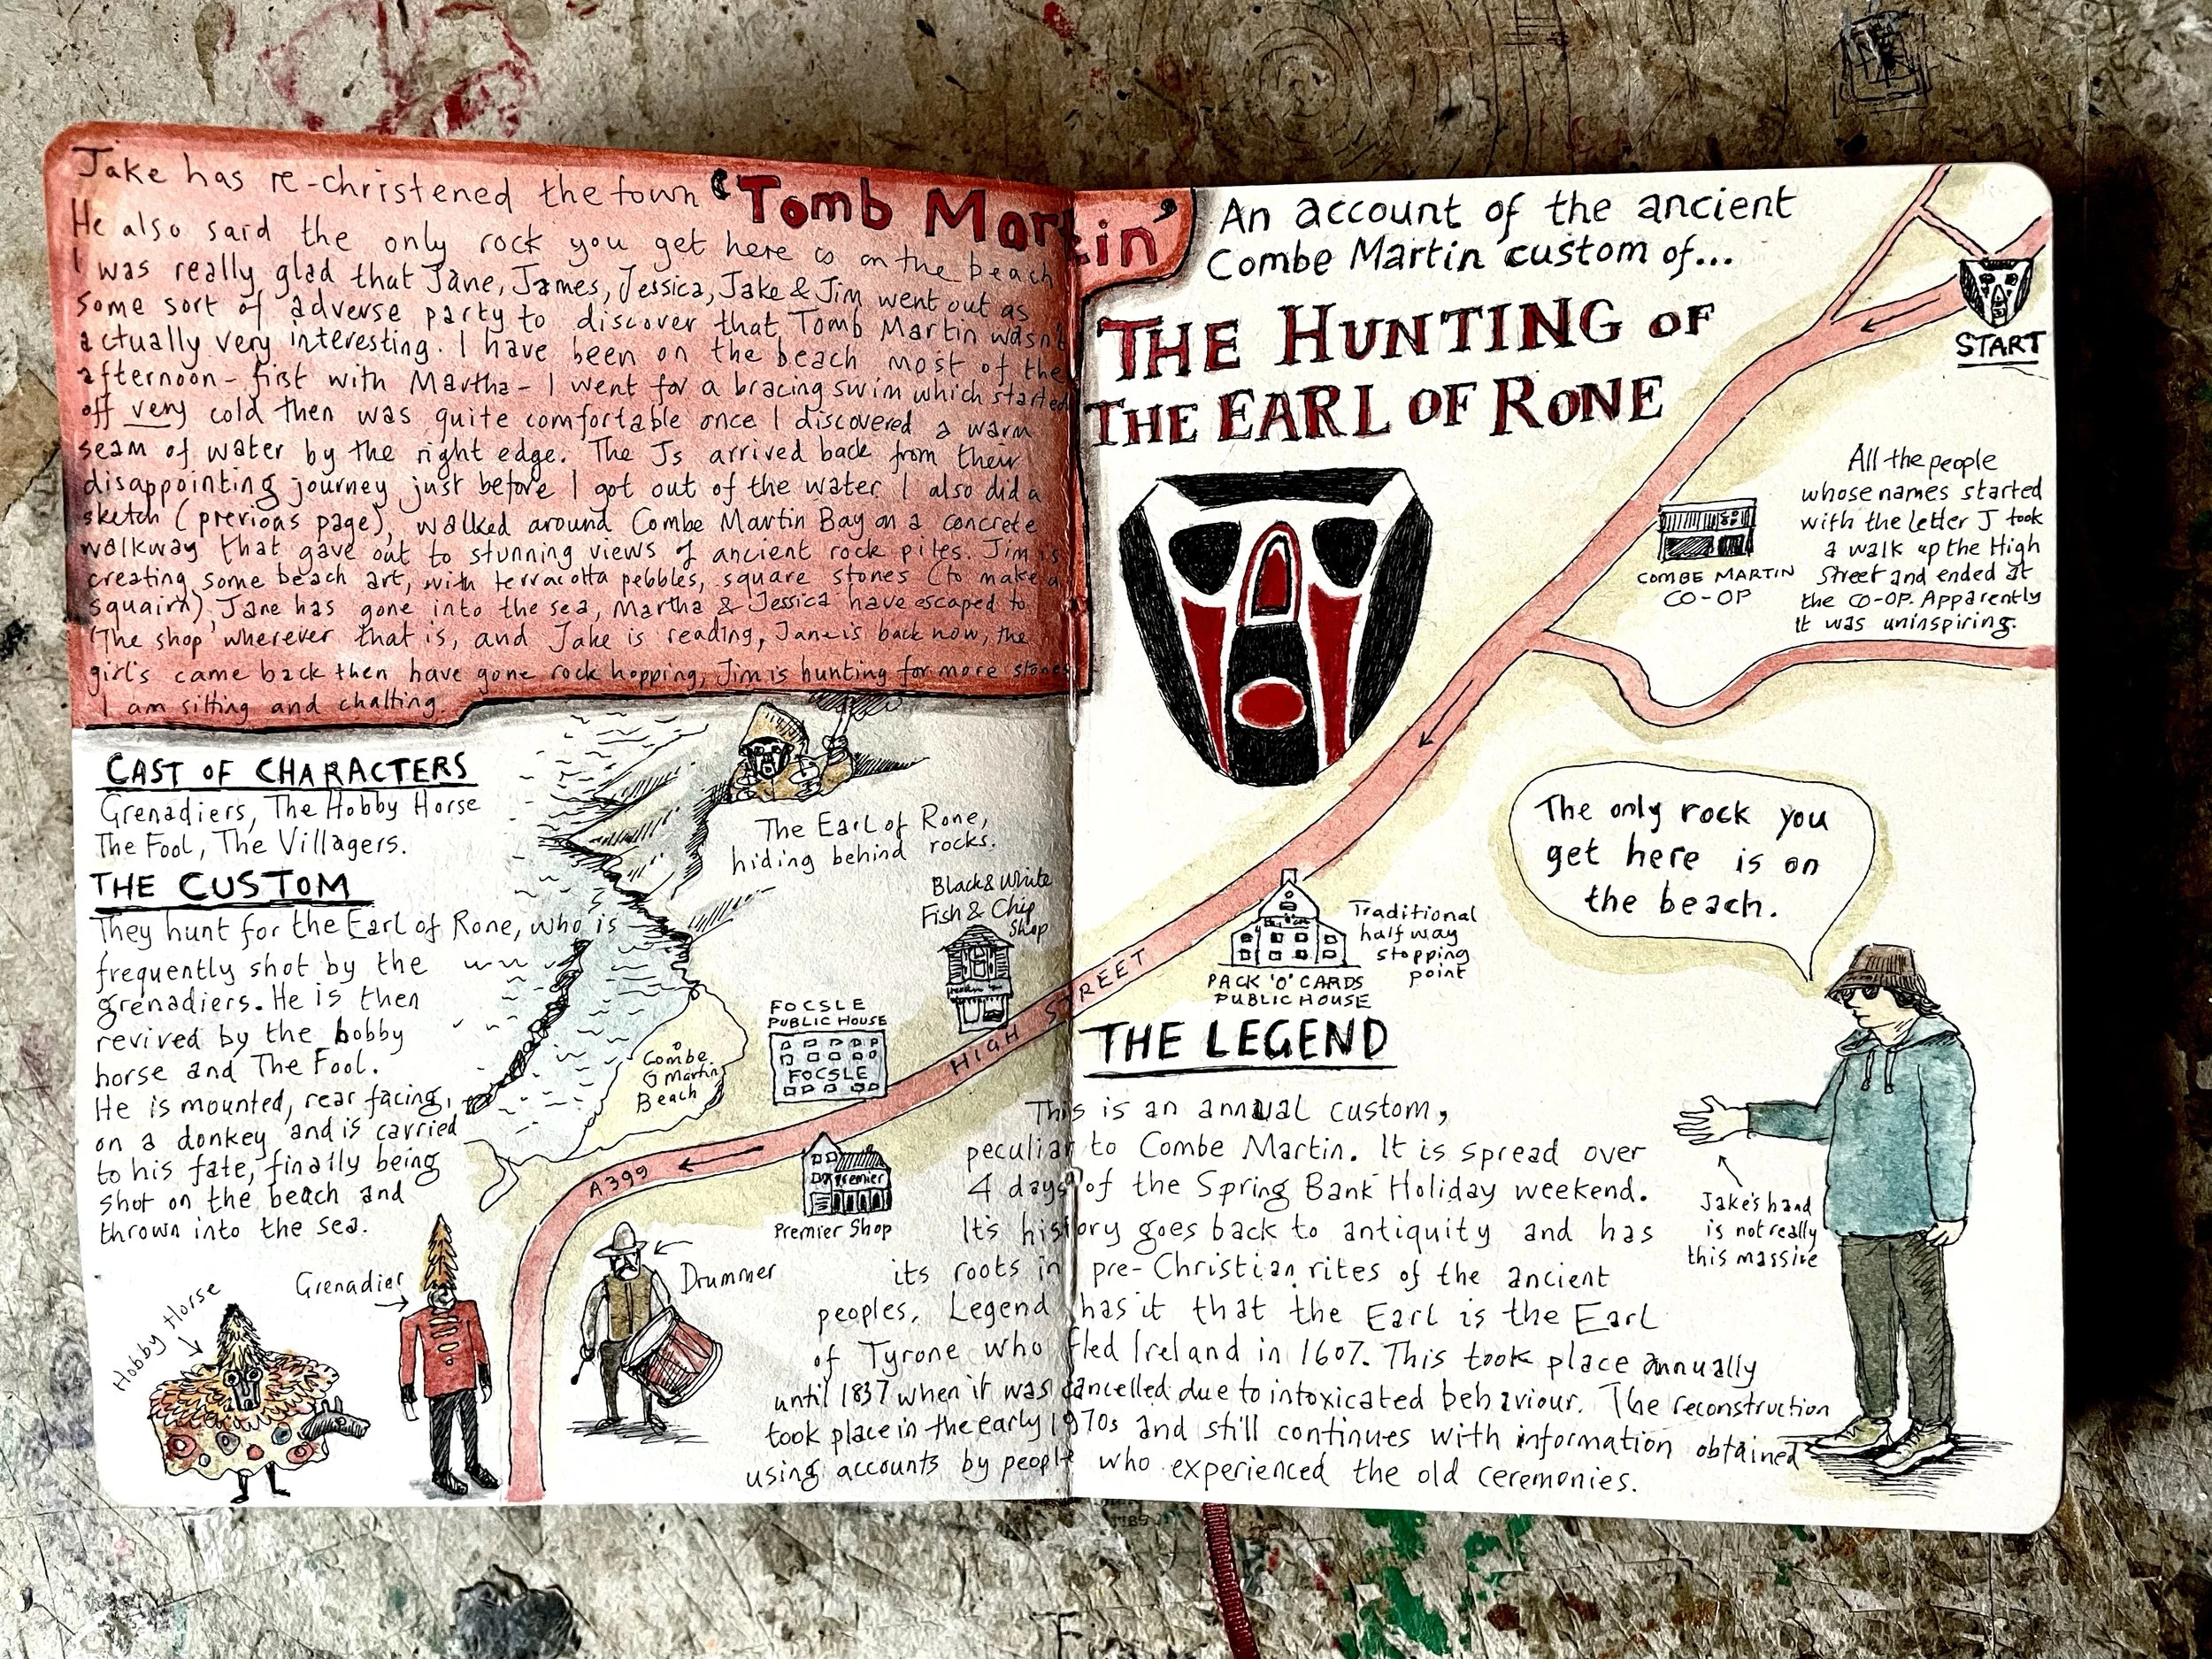 Jake has re-christened the town 'Tomb Martin'
He also said the only rock you get here is on the beach
I was really glad that Jane, James, Jessica, Jake & Jim went out as
some sort of adverse party to discover that Tomb Martin wasn't
actually very interesting. I have been on the beach most of the
afternoon - first with Martha - I went for a bracing swim which started
off very cold then was quite comfortable once I discovered a warm
seam of water by the right edge. The Js arrived back from their
disappointing journey just before I got out of the water. I also did a
sketch (previous page), walked around Combe Martin Bay on a concrete
walkway that gave out to stunning views of ancient rock piles. Jim is
creating some beach art, with terracotta pebbles, square stones (to make a
squairn). Jane has gone into the sea, Martha & Jessica have escaped to
'The shop' wherever that is, and Jake is reading, Jane is back now, the
girl's came back then have gone rock hopping, Jim is hunting for more stones
I am sitting and chatting.
CAST OF CHARACTERS
Grenadiers, The Hobby Horse
The Fool, The Villagers.
THE CUSTOM
They hunt for the Earl of Rone, who is
frequently shot by the
grenadiers. He is then
revived by the hobby
horse and The Fool.
He is mounted, rear facing,
on a donkey and is carried
to his fate, finally being
shot on the beach and
thrown into the sea.
Hobby Horse
Grenadier
Drummer
The Earl of Rone,
hiding behind rocks.
Black & White
Fish & Chip
Shop
FOCSLE
PUBLIC HOUSE
FOCSLE
Combe
Martin
Beach
HIGH STREET
A399
Premier
Premier Shop
An account of the ancient
Combe Martin custom of...
THE HUNTING OF
THE EARL OF RONE
START
All the people
whose names started
with the letter J took
a walk up the High
Street and ended at
the CO-OP. Apparently
it was uninspiring.
COMBE MARTIN
CO-OP
The only rock you
get here is on
the beach.
Traditional
half way
stopping
point
PACK 'O' CARDS
PUBLIC HOUSE
THE LEGEND
This is an annual custom,
peculiar to Combe Martin. It is spread over
4 days of the Spring Bank Holiday weekend.
It's history goes back to antiquity and has
its roots in pre-Christian rites of the ancient
peoples. Legend has it that the Earl is the Earl
of Tyrone who fled Ireland in 1607. This took place annually
until 1837 when it was cancelled due to intoxicated behaviour. The reconstruction
took place in the early 1970s and still continues with information obtained
using accounts by people who experienced the old ceremonies.
Jake's hand
is not really
this massive